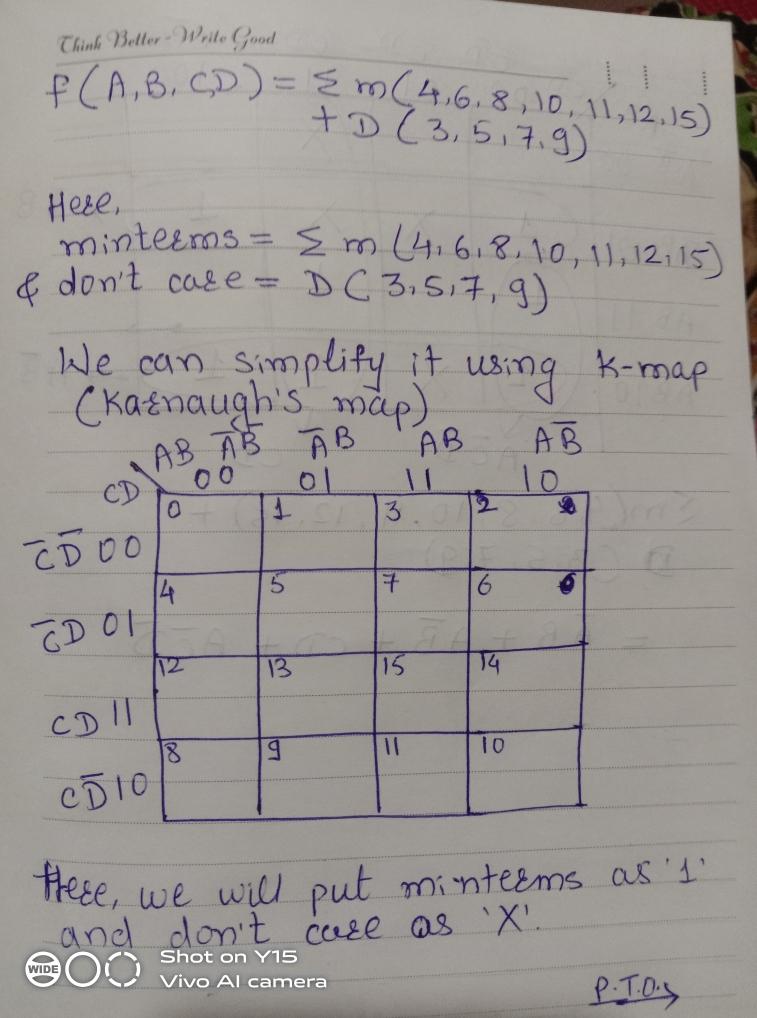 Think Better - Write Good
f(A,B,C,D) = Σ m(4,6,8,10,11,12,15)
+ D (3,5,7,9)
Here,
minterms = Σ m (4,6,8,10,11,12,15)
& don't care = D(3,5,7,9)
We can simplify it using K-map
(Karnaugh's map)
AB A̅B̅ A̅B AB AB̅
CD 00 01 11 10
C̅D̅ 00 0 1 3 2
C̅D 01 4 5 7 6
CD 11 12 13 15 14
CD̅ 10 8 9 11 10
Here, we will put minterms as '1'
and don't care as 'X'.
WIDE
Shot on Y15
Vivo AI camera
P.T.O.